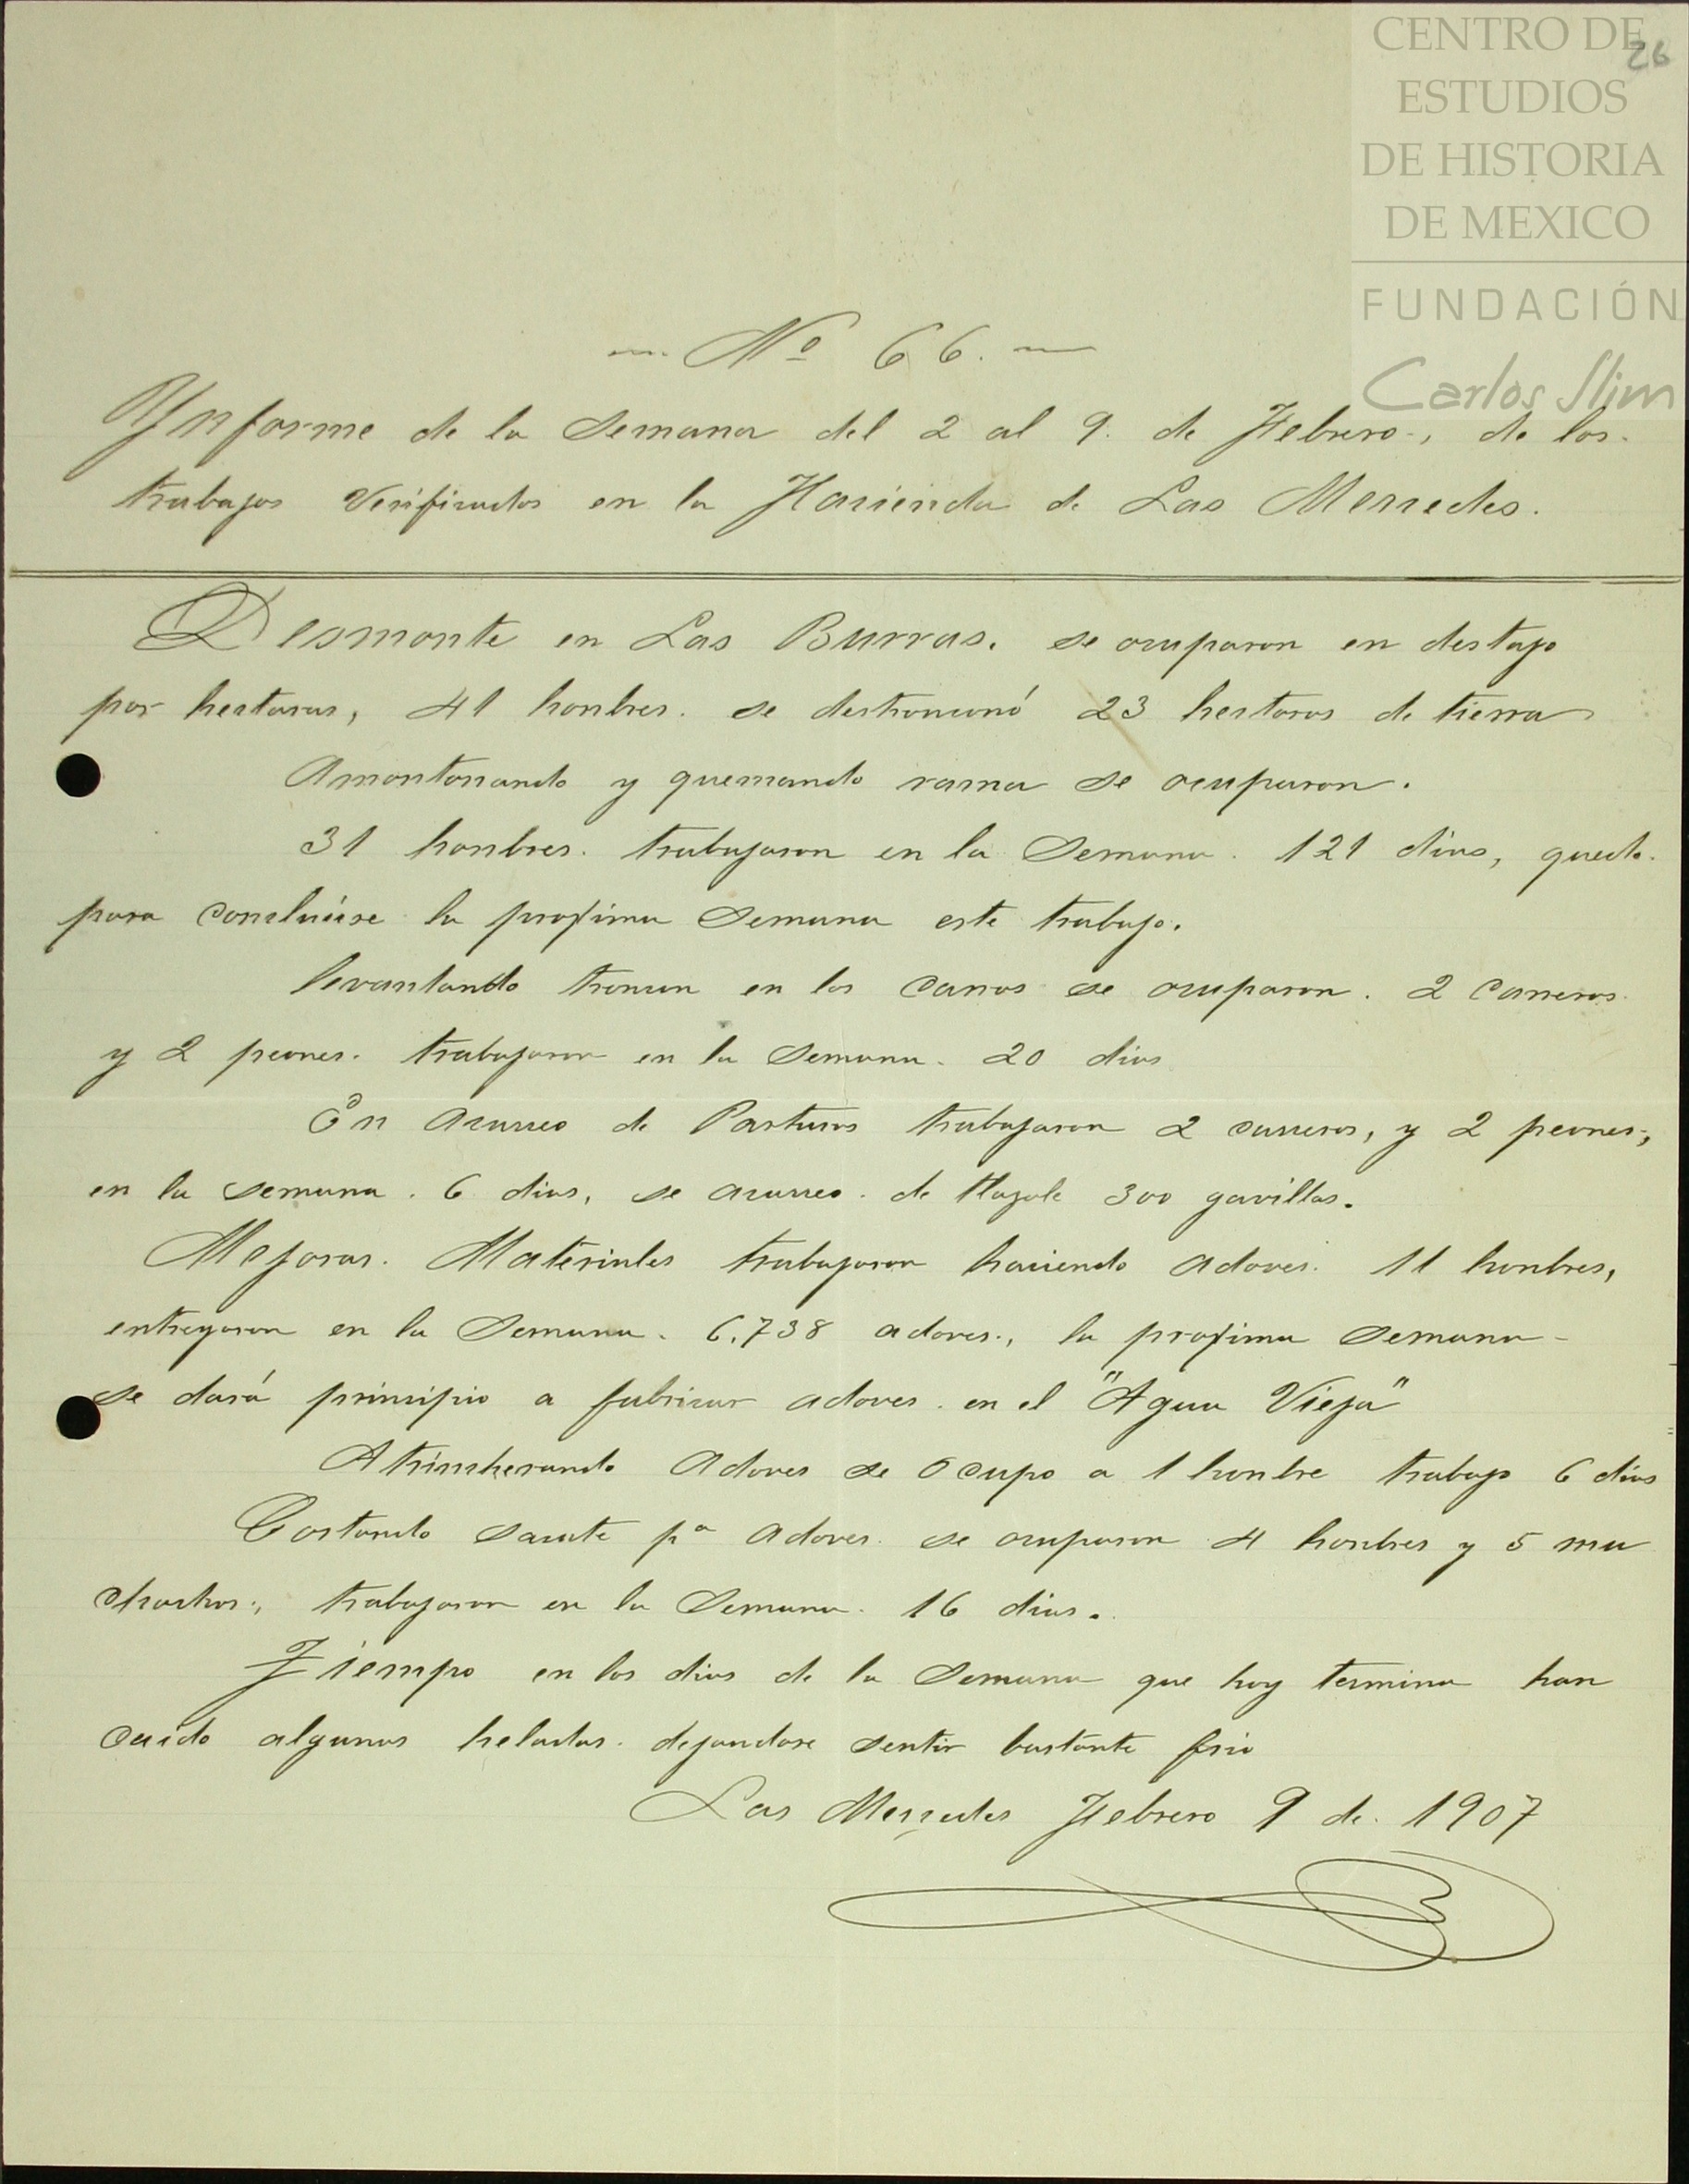 CENTRO DE
ESTUDIOS
DE HISTORIA
DE MEXICO
FUNDACIÓN
Carlos Slim
26
Nº 66.
Ynforme de la Semana del 2 al 9. de Febrero, de los
trabajos Verificados en la Hacienda de Las Mercedes.
Desmonte en Las Burras. se ocuparon en destajo
por hectaras, 41 honbres. se destronconó 23 hectaras de tierra
Amontonando y quemando rama se ocuparon.
31 honbres. trabajaron en la Semana. 121 dias, queda
para concluirse la progima Semana este trabajo.
levantando troncon en los carros se ocuparon. 2 Carreros
y 2 peones. trabajaron en la Semana. 20 dias
En acarreo de Pasturas trabajaron 2 carreros, y 2 peones,
en la semana. 6 dias, se acarreo. de tlazole 300 gavillas.
Mejoras. Materiales trabajaron haciendo adoves. 11 honbres,
entregaron en la Semana. 6.738 adoves., la progima Semana
se dará principio a fabricar adoves. en el "Agua Vieja"
Atrincherando Adoves se Ocupo a 1 honbre trabajo 6 dias
Cortando sacate pª Adoves. se ocuparon 4 honbres y 5 mu
chachos., trabajaron en la Semana. 16 dias.
Tiempo en los dias de la Semana que hoy termina han
caido algunas heladas. dejandose sentir bastante frio
Las Mercedes Febrero 9 de. 1907